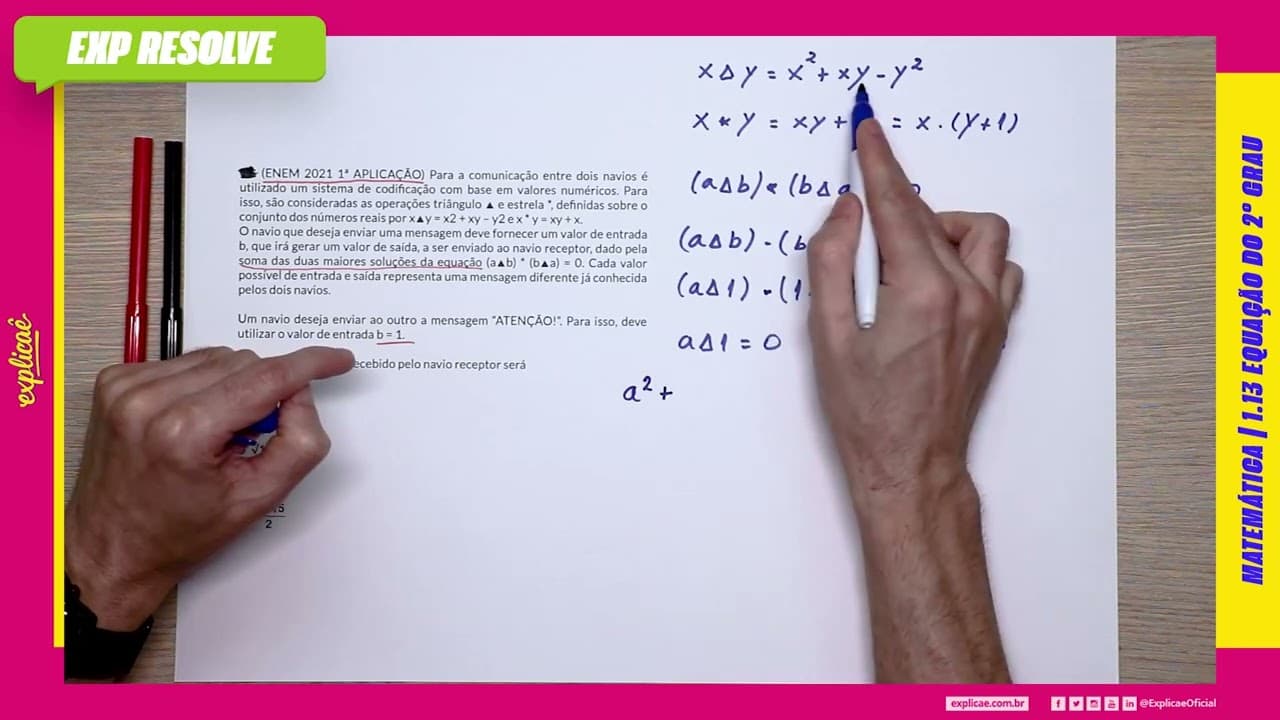 EXP RESOLVE
(ENEM 2021 1ª APLICAÇÃO) Para a comunicação entre dois navios é
utilizado um sistema de codificação com base em valores numéricos. Para
isso, são consideradas as operações triângulo ▲ e estrela *, definidas sobre o
conjunto dos números reais por x▲y = x2 + xy – y2 e x * y = xy + x.
O navio que deseja enviar uma mensagem deve fornecer um valor de entrada
b, que irá gerar um valor de saída, a ser enviado ao navio receptor, dado pela
soma das duas maiores soluções da equação (a▲b) * (b▲a) = 0. Cada valor
possível de entrada e saída representa uma mensagem diferente já conhecida
pelos dois navios.
Um navio deseja enviar ao outro a mensagem "ATENÇÃO!". Para isso, deve
utilizar o valor de entrada b = 1.
ecebido pelo navio receptor será
2
x Δ y = x² + xy - y²
x * y = xy + = x . (y+1)
(aΔb) * (bΔa
(aΔb) . (b
(aΔ1) . (1
aΔ1 = 0
a² +
explicaê
MATEMÁTICA | 1.13 EQUAÇÃO DO 2º GRAU
explicae.com.br
@ExplicaeOficial